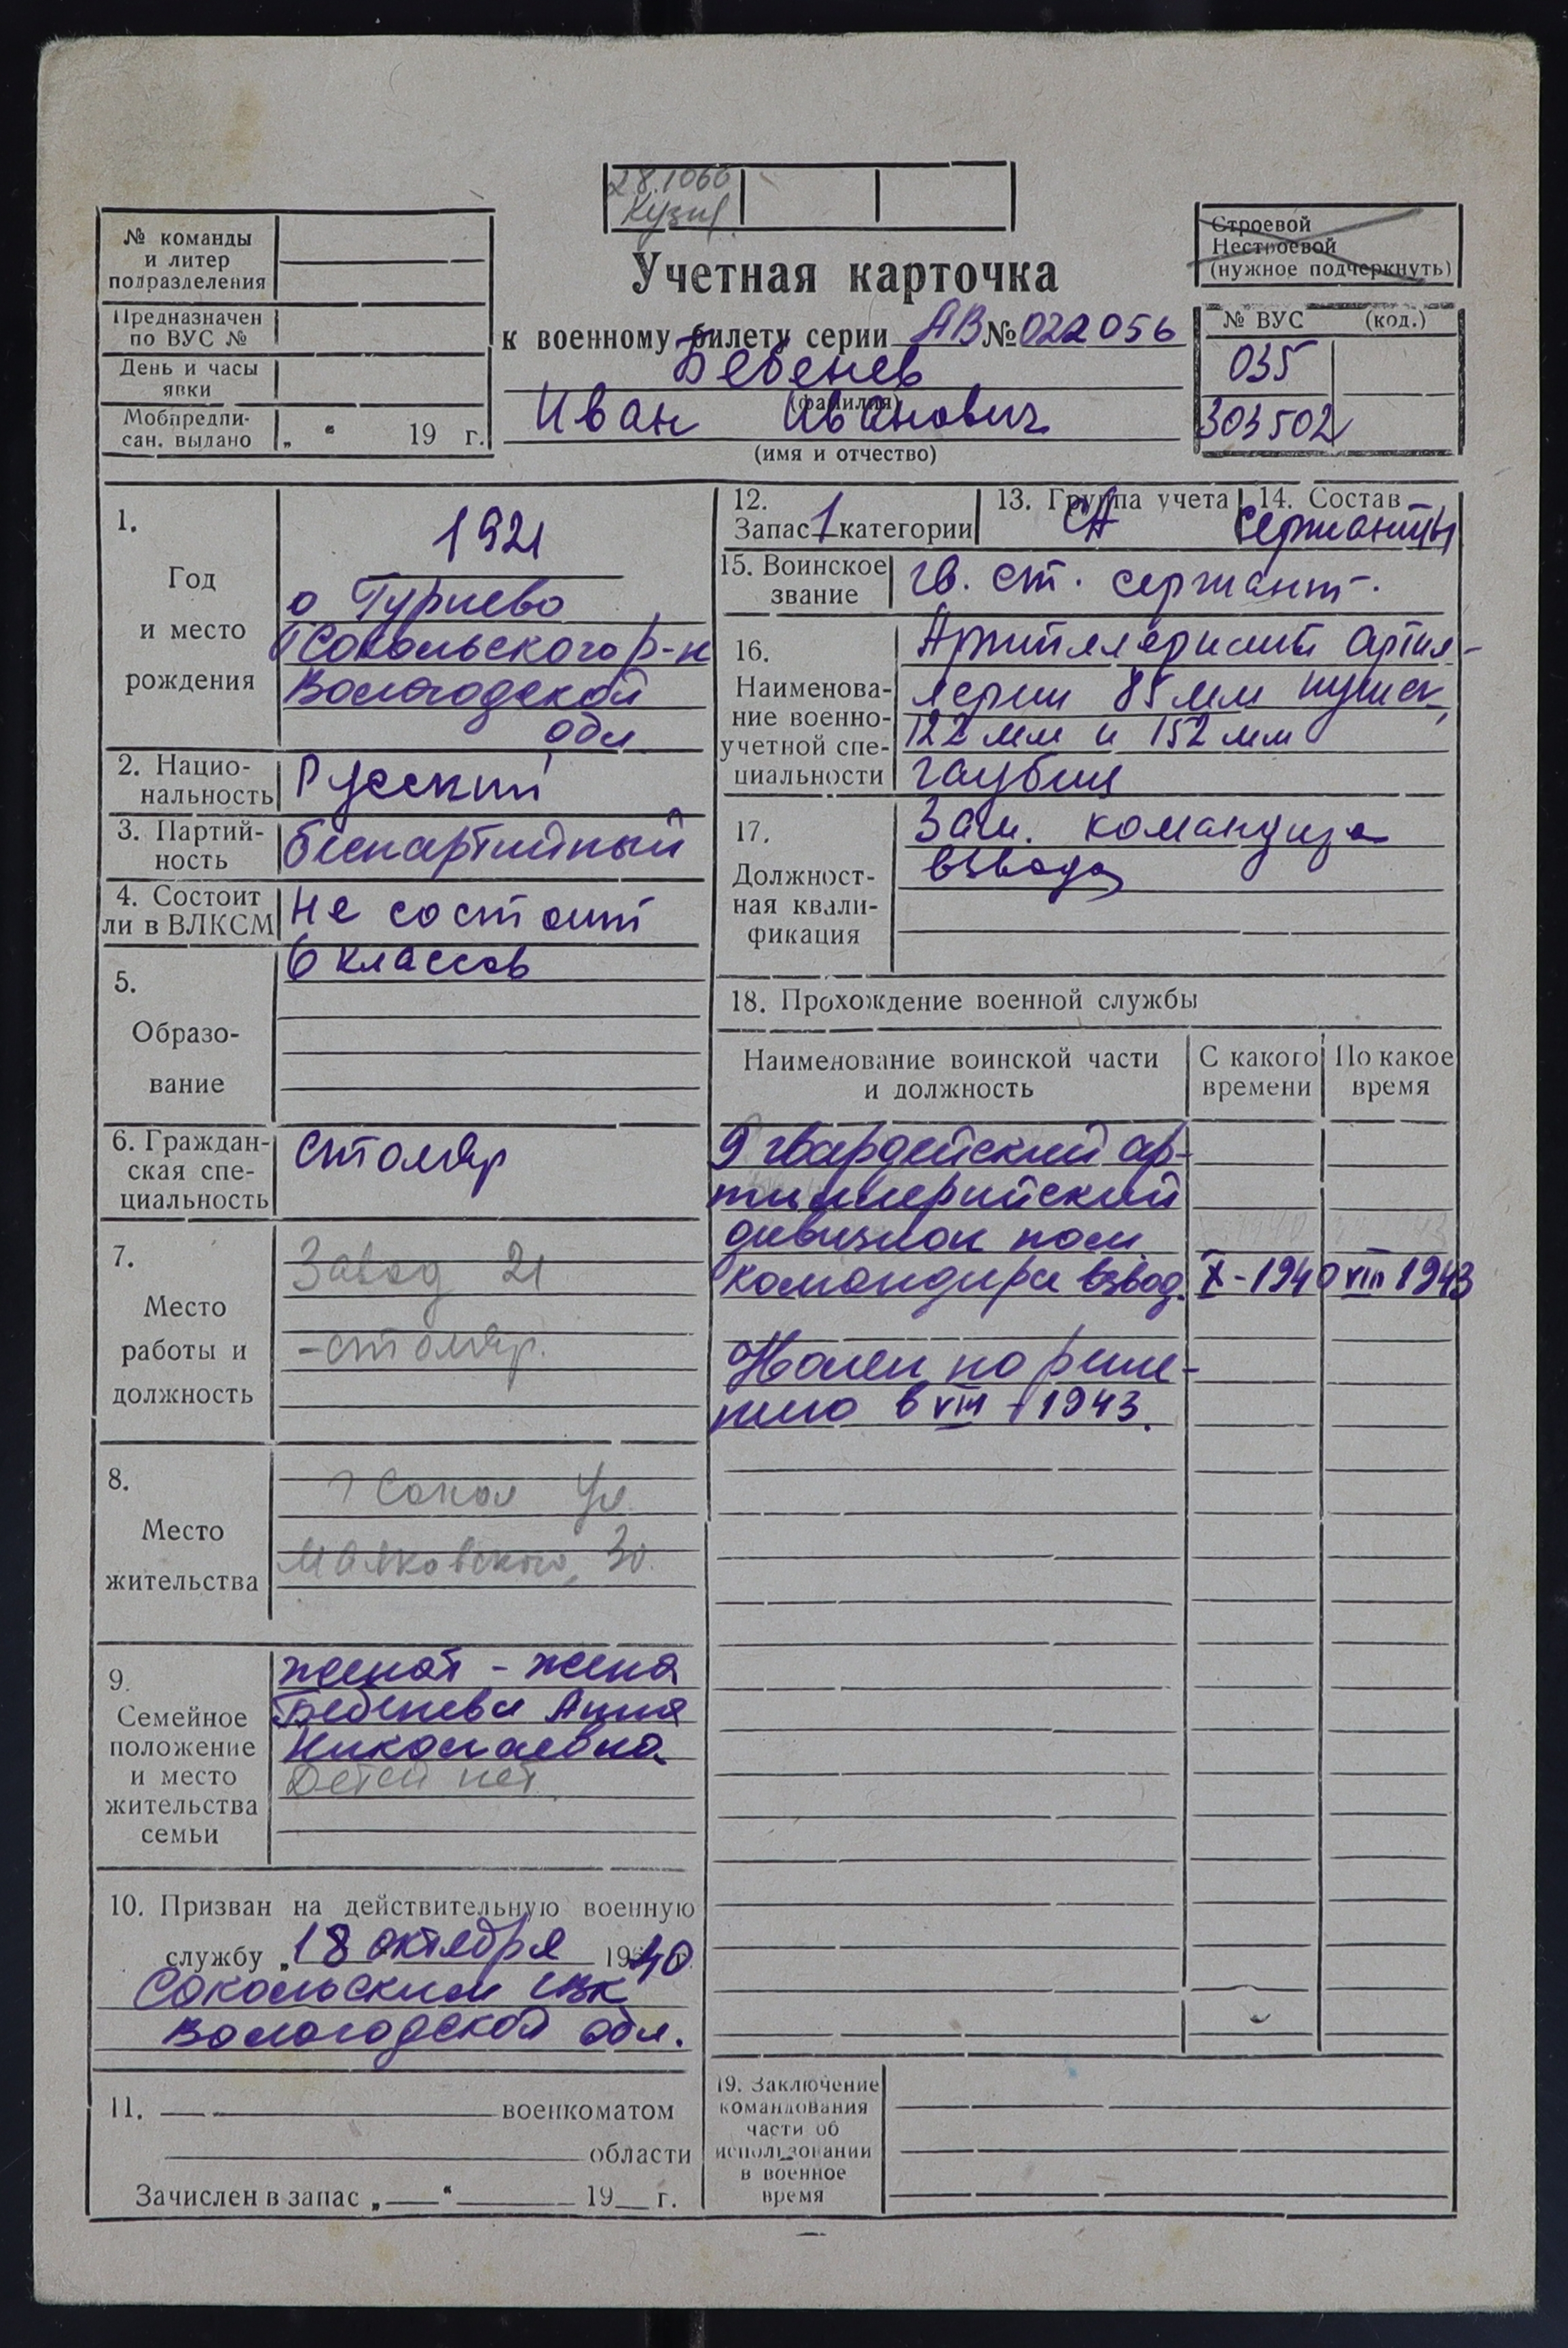 28.1066
№ команды
и литер
подразделения
Предназначен
по ВУС №
День и часы
явки
Мобпредпи-
сан. выдано „ “ 19 г.
Учетная карточка
к военному билету серии АВ № 022056
Бебенев
(фамилия)
Иван Иванович
(имя и отчество)
Строевой
Нестроевой
(нужное подчеркнуть)
№ ВУС (код.)
035
303502
1.
Год
и место
рождения
1921
Сокольского р-н
Вологодской
обл
2. Нацио-
нальность
Русский
3. Партий-
ность
беспартийный
4. Состоит
ли в ВЛКСМ
не состоит
5.
Образо-
вание
6 классов
6. Граждан-
ская спе-
циальность
столяр
7.
Место
работы и
должность
Завод 21
-столяр.
8.
Место
жительства
г Сокол ул.
Маяковского, 30.
9.
Семейное
положение
и место
жительства
семьи
женат - жена
Бебенева Анна
Николаевна
Детей нет
10. Призван на действительную военную
службу „ 18 октября 1940
Сокольским
Вологодской обл.
11. военкоматом
области
Зачислен в запас „ “ 19 г.
12.
Запас 1 категории
13. Группа учета
СА
14. Состав
сержанты
15. Воинское
звание
гв. ст. сержант.
16.
Наименова-
ние военно-
учетной спе-
циальности
Артиллеристы артил-
лерии 85 мм пушек,
122 мм и 152 мм
гаубиц
17.
Должност-
ная квали-
фикация
Зам. командира
взвода
18. Прохождение военной службы
Наименование воинской части
и должность
С какого
времени
По какое
время
9 гвардейский ар-
тиллерийский
дивизион пом.
командира взвод. X-1940 VIII 1943
в VIII 1943.
19. Заключение
командования
части об
использовании
в военное
время